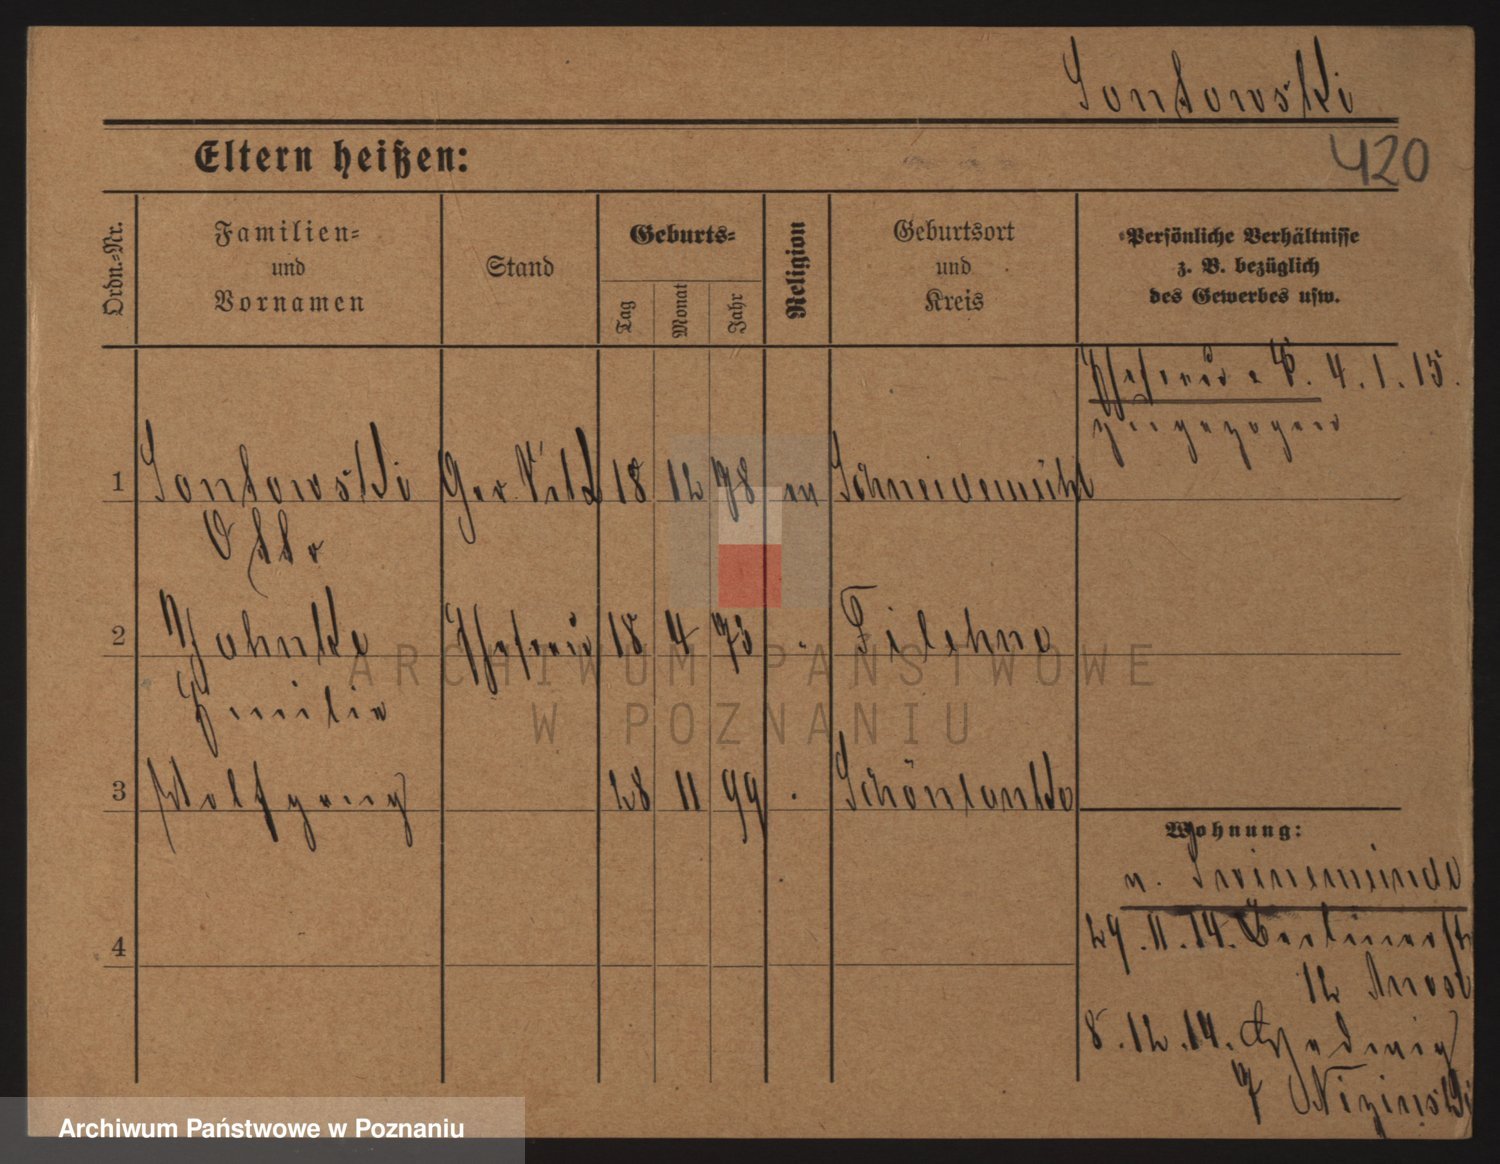 Sontowski
420
Eltern heißen:
Ordn.-Nr.
Familien-
und
Vornamen
Stand
Geburts-
Tag
Monat
Jahr
Religion
Geburtsort
und
Kreis
Persönliche Verhältnisse
z. B. bezüglich
des Gewerbes usw.
Ehefrau u. K. 4.1.15.
zugezogen
1 Sontowski Ger. 18 12 78 ev Schneidemühl
Otto
2 Jahnke Ehefrau 18 4 73 Filehne
Emilie
ARCHIWUM PAŃSTWOWE
W POZNANIU
3 Wolfgang 28 11 99 Schönlanke
Wohnung:
v. Swinemünde
29.11.14. Berlinerstr
12
8.12.14. Hedwig
7 Nizinski
4
Archiwum Państwowe w Poznaniu